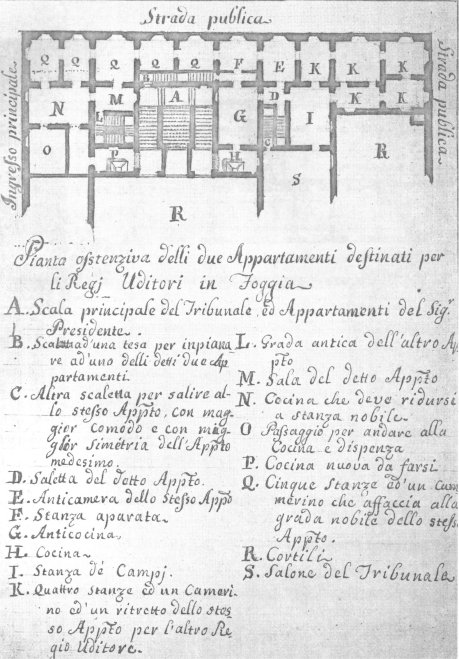 Strada publica
Ingresso principale
Strada publica
Q Q Q Q Q F E K K K
B
N M A D K K
L G I
O C R
P H S
R
Pianta ostenziva delli due Appartamenti destinati per
li Regj Uditori in Foggia
A. Scala principale del Tribunale, ed Appartamenti del Sigr
Presidente.
B. ad'una tesa per inpiana
re ad'uno delli detti due Ap
partamenti.
C. Altra scaletta per salire al-
lo stesso Appto, con mag
gior comodo e con mag
gior simetria dell'Appto
medesimo.
D. Saletta del detto Appto.
E. Anticamera dello stesso Appto
F. Stanza aparata
G. Anticocina
H. Cocina
I. Stanza de' Campj.
K. Quattro stanze ed un Cameri
no ed'un ritretto dello stes
so Appto per l'altro Re
gio Uditore.
L. Grada antica dell'altro Ap
pto
M. Sala del detto Appto
N. Cocina che deve ridursi
a stanza nobile
O Passaggio per andare alla
Cocina e dispenza
P. Cocina nuova da farsi
Q. Cinque stanze ed'un Cam
merino che affaccia alla
grada nobile dello stess.
Appto.
R. Cortili
S. Salone del Tribunale